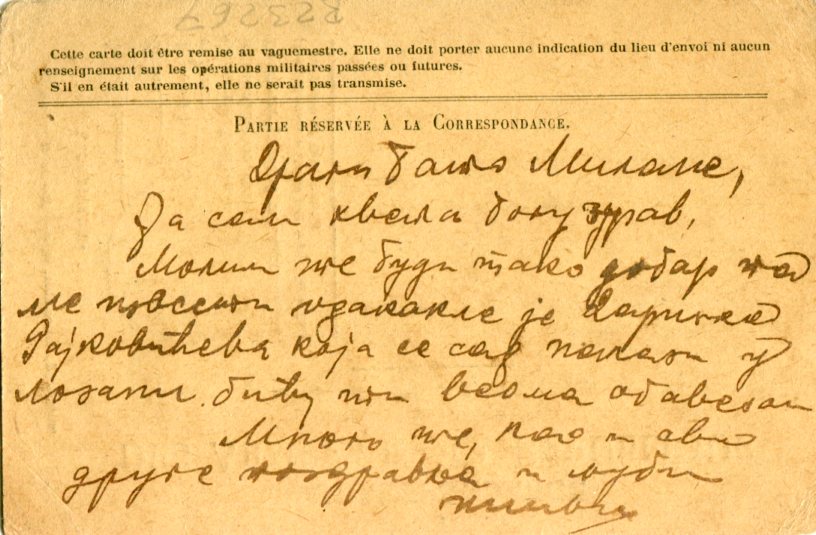 R23267
Cette carte doit être remise au vaguemestre. Elle ne doit porter aucune indication du lieu d'envoi ni aucun
renseignement sur les opérations militaires passées ou futures.
S'il en était autrement, elle ne serait pas transmise.
PARTIE RÉSERVÉE À LA CORRESPONDANCE.
Драги бато Милане,
Ја сам хвала богу здрав,
Молим те буди тако добар па
ме извести одакле је Даринка
Рајковићева која се сад налази у
лозани. бићу ти веома обавезан
Много те, као и све
друге поздравља и љуби